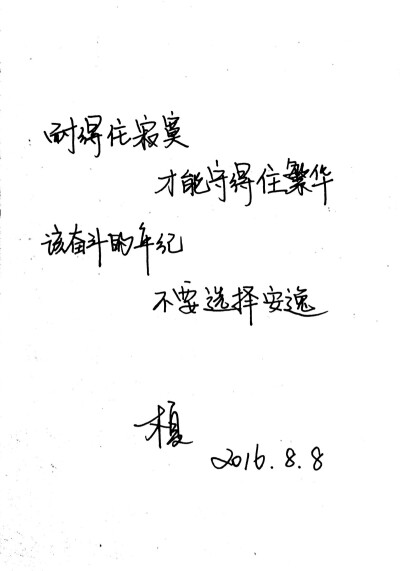 耐得住寂寞
才能守得住繁华
该奋斗的年纪
不要选择安逸
榎
2016.8.8